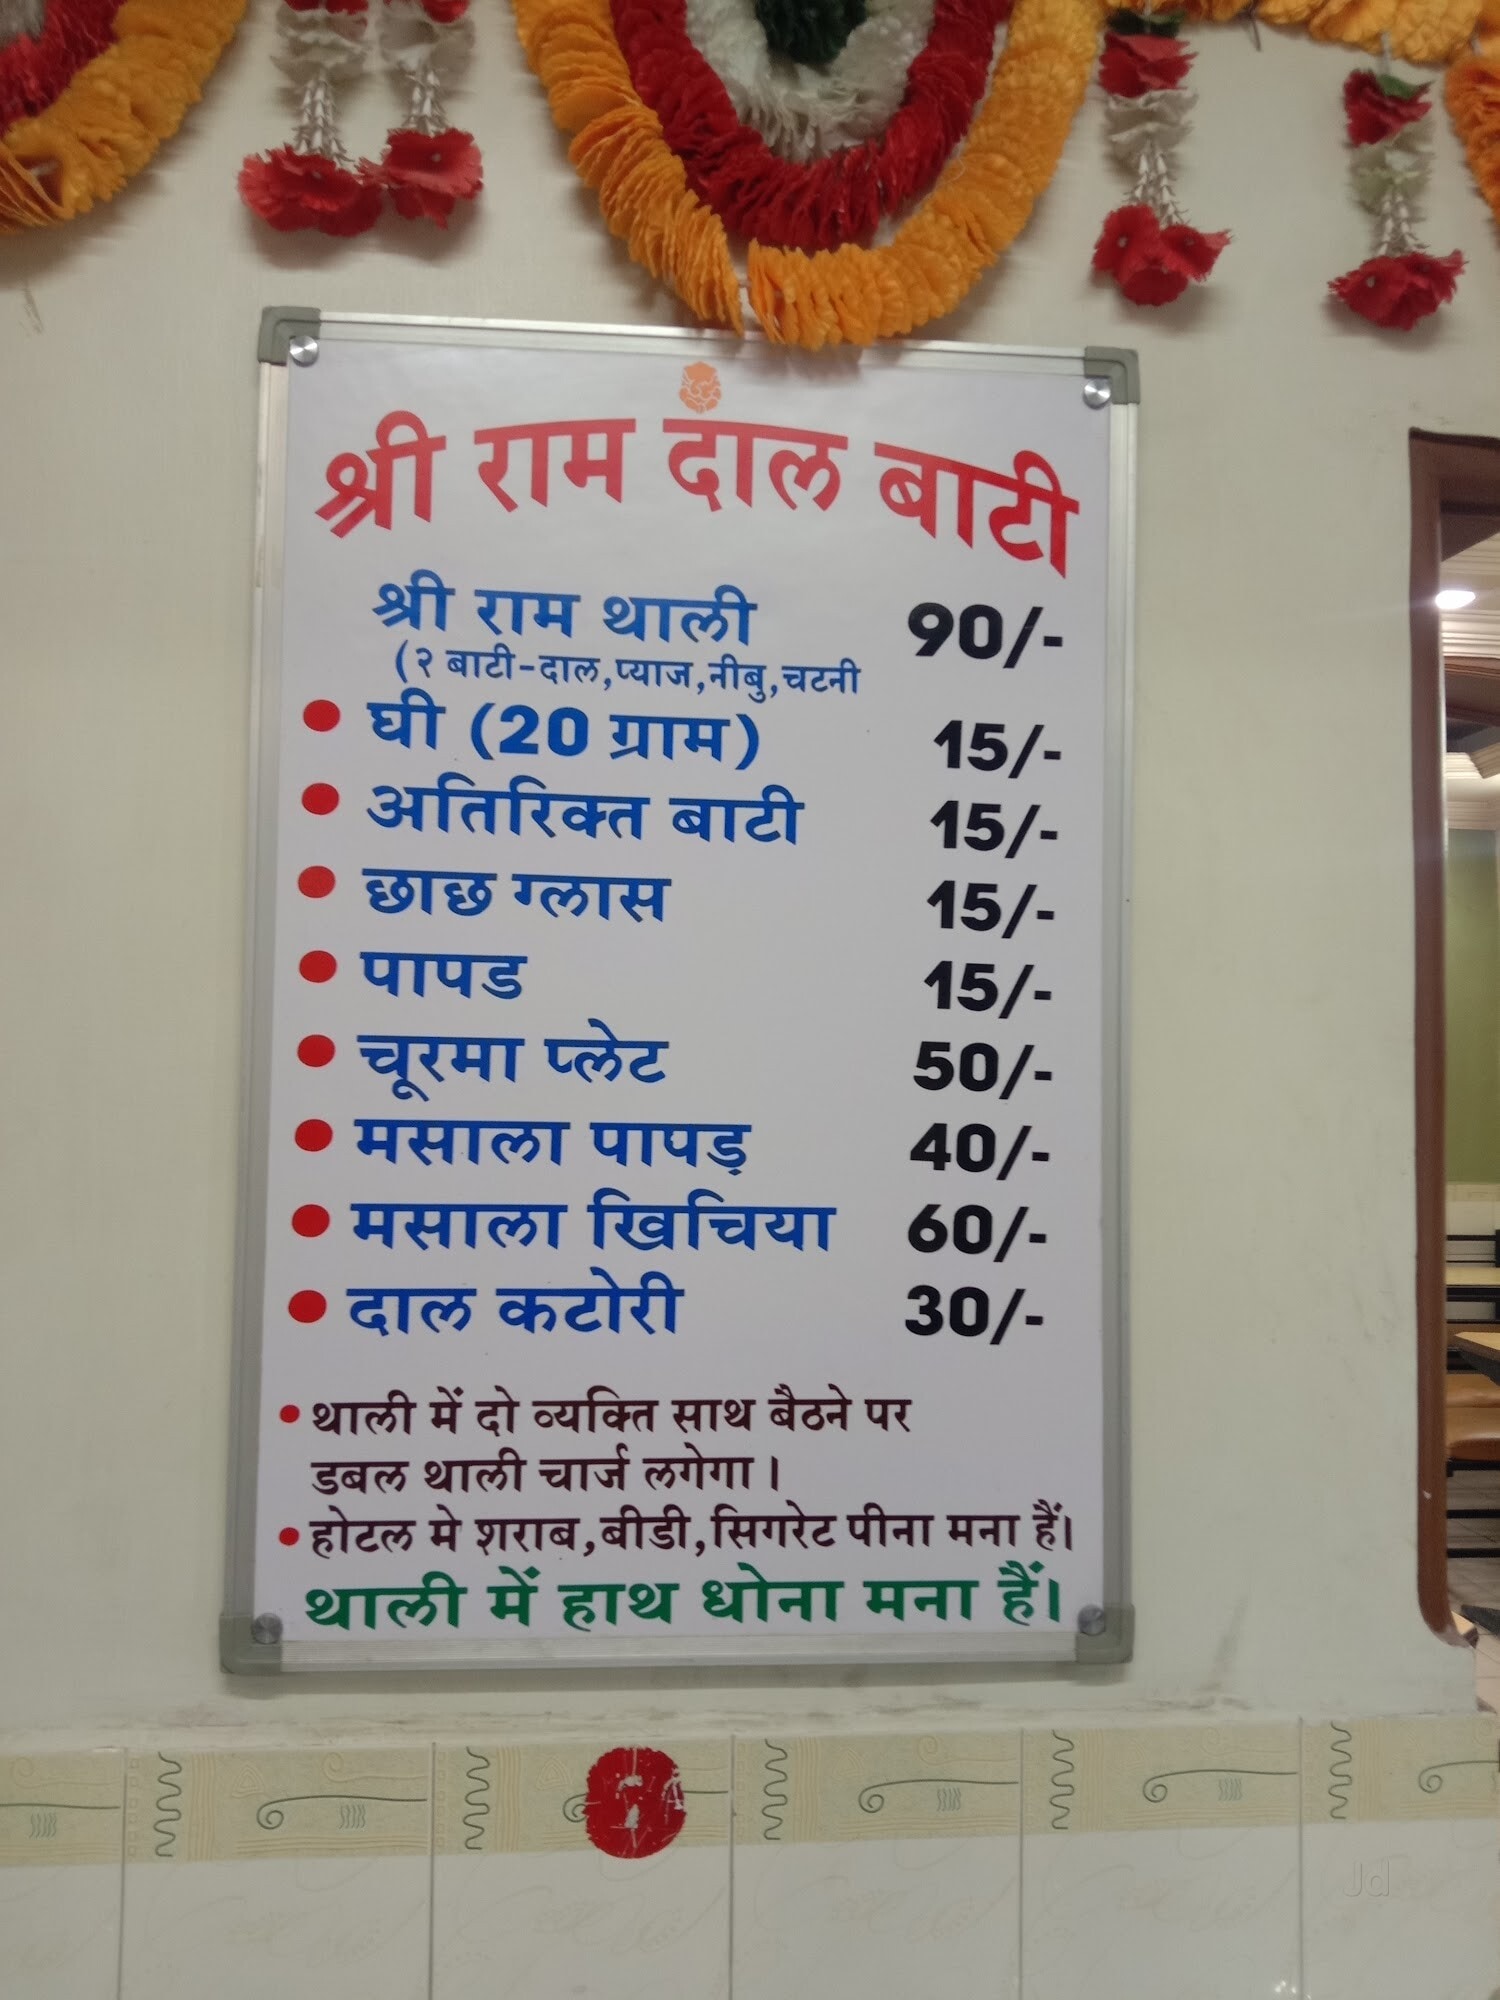 श्री राम दाल बाटी
श्री राम थाली 90/-
(२ बाटी-दाल,प्याज,नीबु,चटनी
• घी (20 ग्राम) 15/-
• अतिरिक्त बाटी 15/-
• छाछ ग्लास 15/-
• पापड 15/-
• चूरमा प्लेट 50/-
• मसाला पापड़ 40/-
• मसाला खिचिया 60/-
• दाल कटोरी 30/-
• थाली में दो व्यक्ति साथ बैठने पर
डबल थाली चार्ज लगेगा।
• होटल मे शराब,बीडी,सिगरेट पीना मना हैं।
थाली में हाथ धोना मना हैं।
Jd